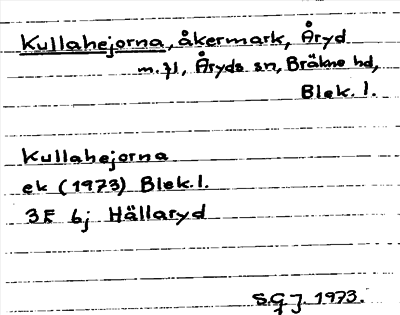 Kullahejorna, åkermark, Åryd
m.fl, Åryds sn, Bräkne hd,
Blek. l.
Kullahejorna
ek (1973) Blek.l.
3F 6j Hällaryd
S.G J. 1973.